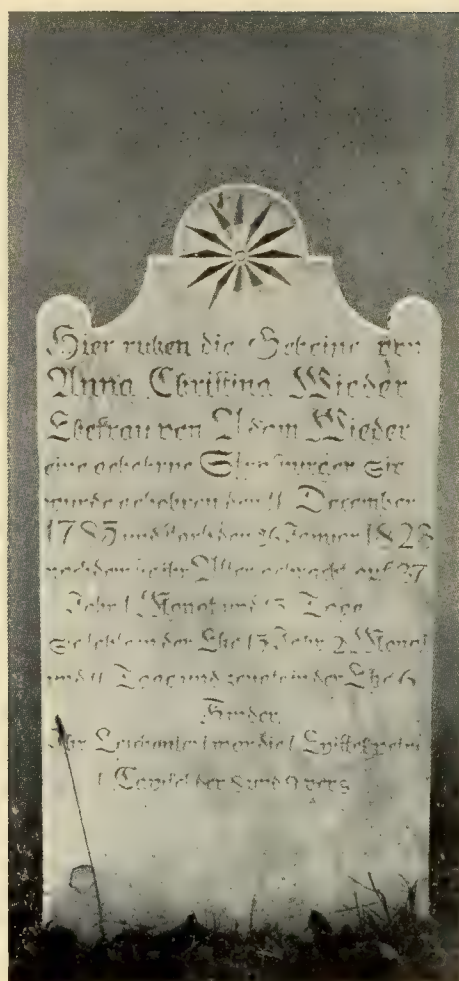 Hier ruhen die Gebeine von
Anna Christina Wieder
Ehefrau von Adam Wieder
eine gebohrne Sie
wurde gebohren den 11 December
1785 und starb den 26 Jenner 1823
nachdem sie ihr Alter gebracht auf 37
Jahr 1 Monat und 15 Tage
Sie lebte in der Ehe 15 Jahr 2 Monat
und 11 Tage und zeugte in der Ehe 6
Kinder
Ihr Leichentext war die 1 Epistel
1 Capitel der 8 und 9 vers